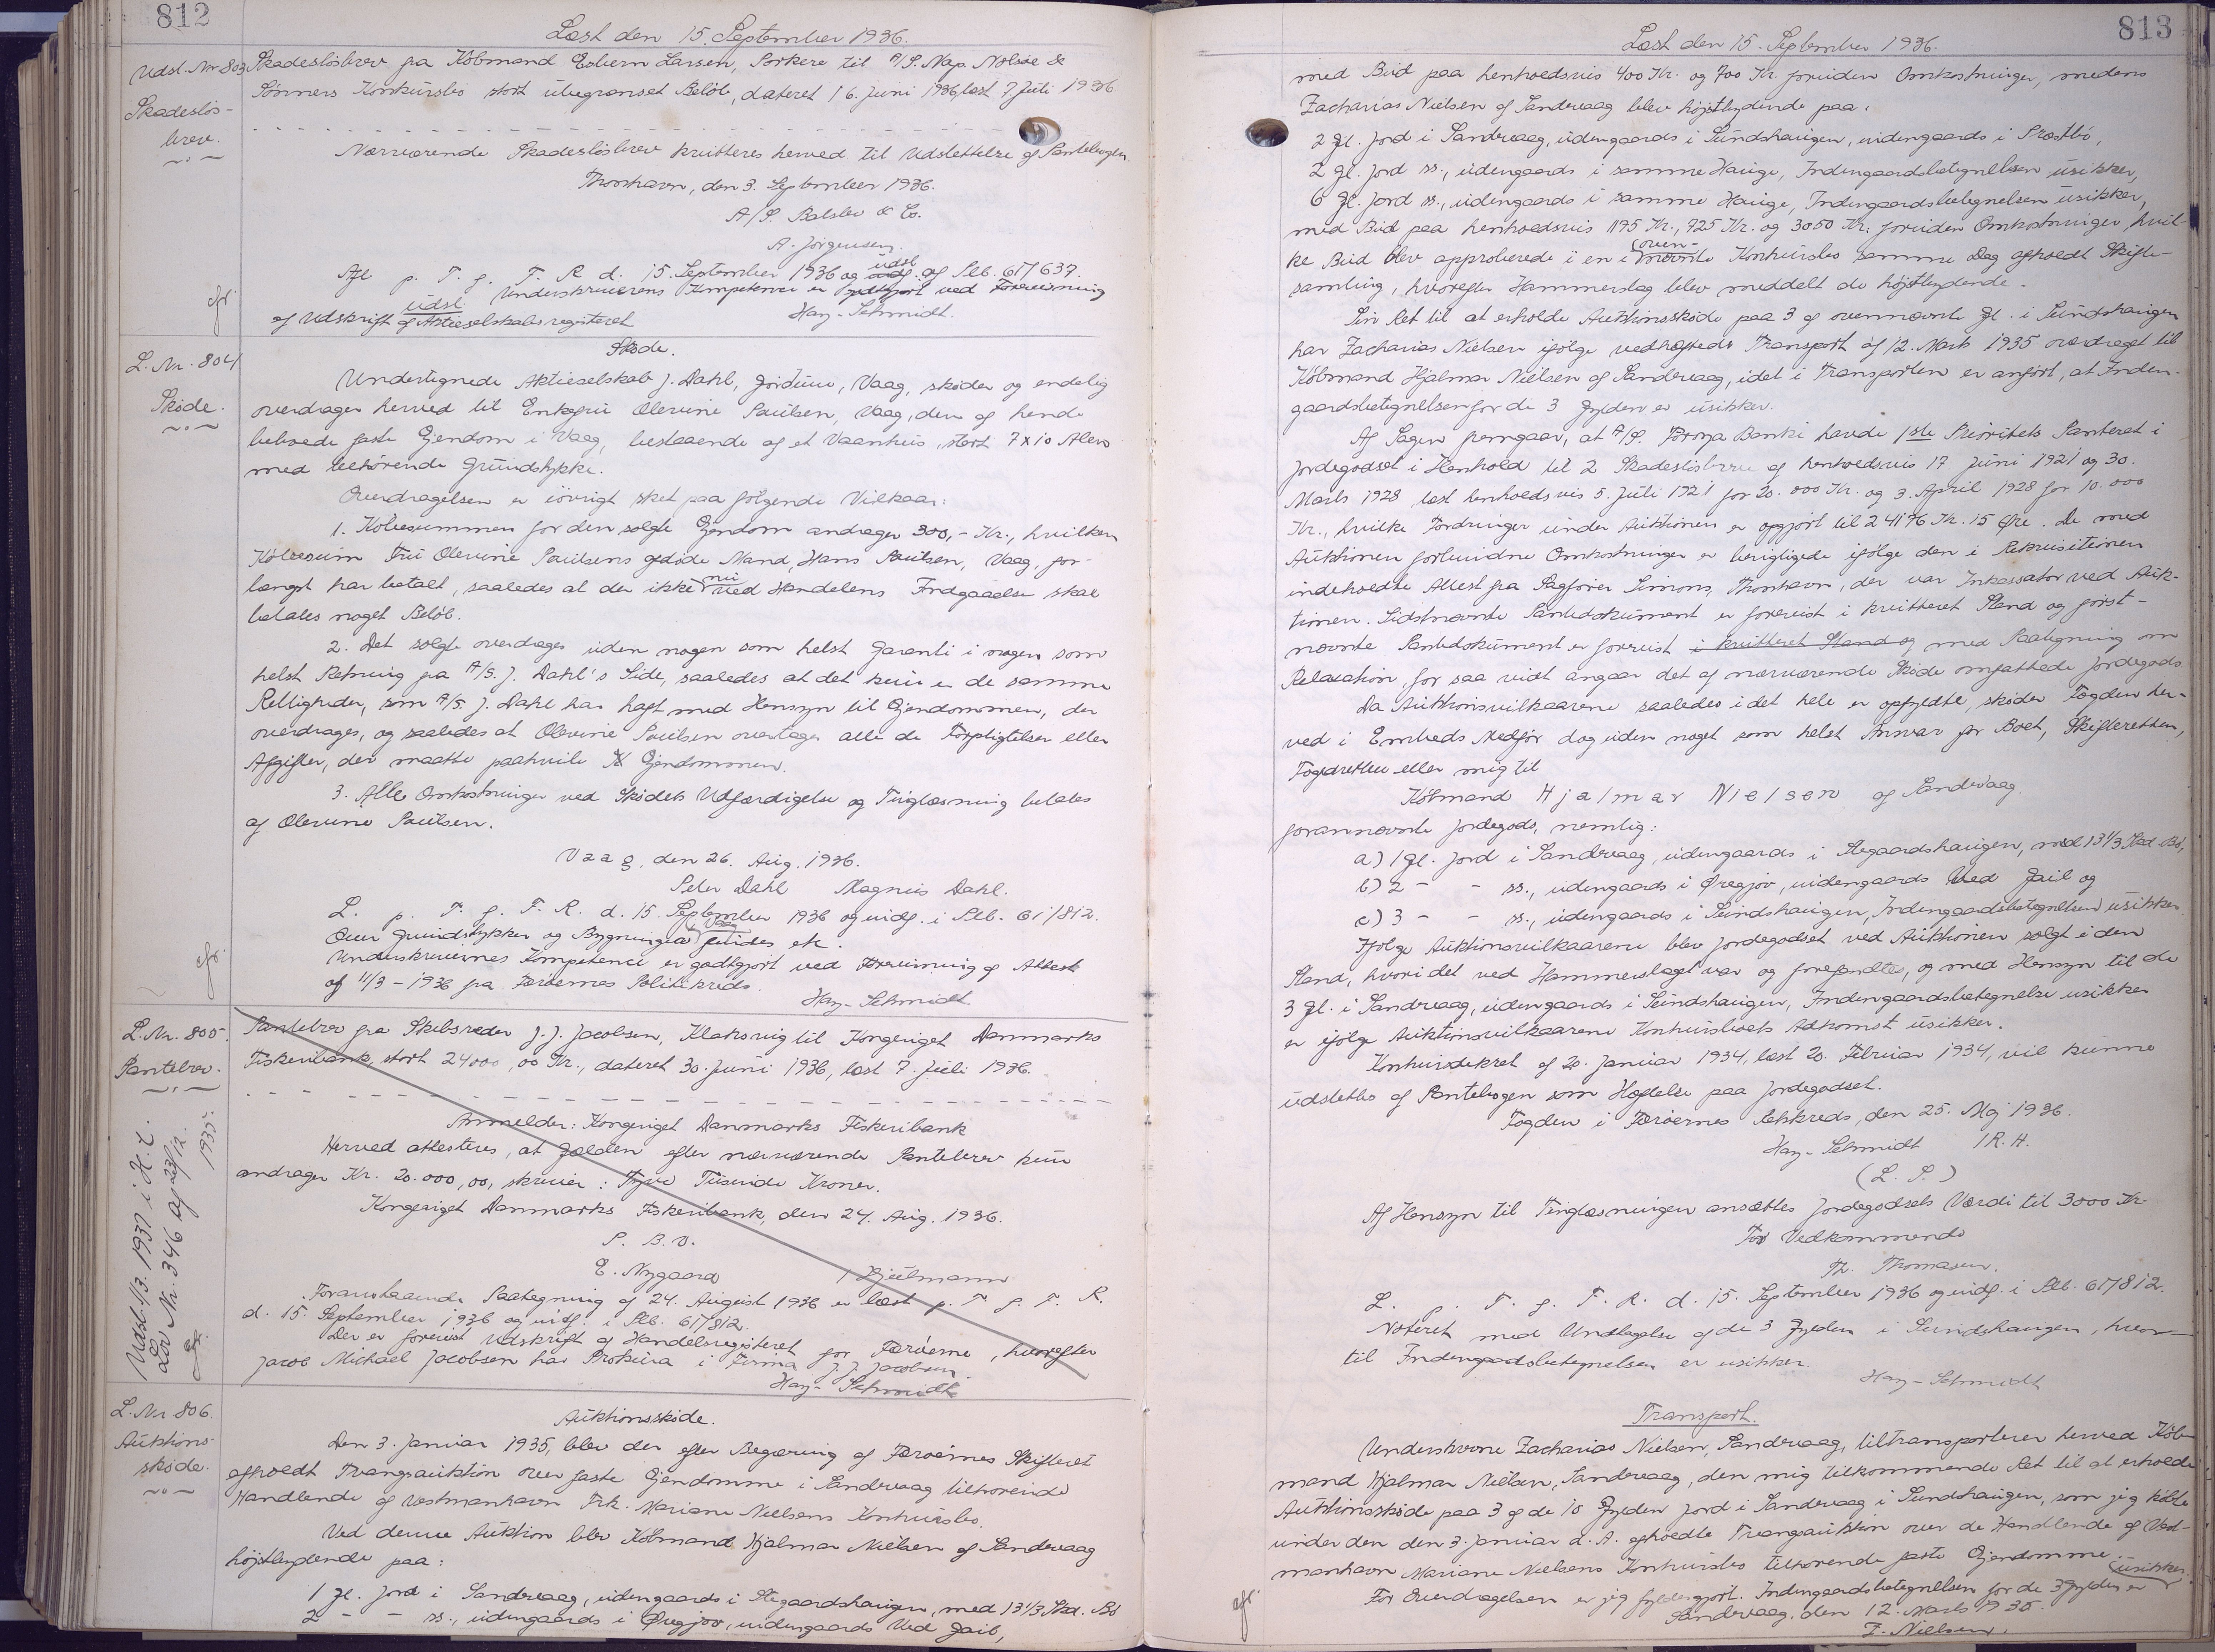 812
Læst den 15. September 1936.
Udsl. Nr 803 Skadesløsbrev fra Købmand Esbern Larsen, Porkere til A/S. Nap. Nolsøe &
Sønners Konkursbo stort ubegrænset Beløb, dateret 16. Juni 1936, læst 7 Juli 1936
Skadesløs-
brev.
Nærværende Skadesløsbrev kvitteres herved til Udslettelse af Pantebogen.
Thorshavn, den 3. September 1936.
A/S. Balslev & Co.
A. Jørgensen.
Afl. p. T. f. F. R. d. 15. September 1936 og udsl. af Pb. 61/637.
Underskriverens Kompetence er godtgjort ved Forevisning
af Udskrift af Aktieselskabsregisteret
Hay-Schmidt.
L. Nr. 804
Skøde.
Skøde.
Undertegnede Aktieselskab J. Dahl, Vaag, skøder og endelig
overdrager herved til Enkefru Olevine Poulsen, Vaag, den af hende
beboede faste Ejendom i Vaag, bestaaende af et Vaanhus, stort 7 x 10 Alen
med tilhørende Grundstykke.
Overdragelsen er iøvrigt sket paa følgende Vilkaar:
1. Købesummen for den solgte Ejendom andrager 300,- Kr., hvilken
Købesum Fru Olevine Poulsens afdøde Mand, Hans Poulsen, Vaag, for-
længst har betalt, saaledes at der ikke nu ved Handelens Indgaaelse skal
betales noget Beløb.
2. Det solgte overdrages uden nogen som helst Garanti i nogen som
helst Retning fra A/S. J. Dahl's Side, saaledes at det kun er de samme
Rettigheder, som A/S J. Dahl har haft med Hensyn til Ejendommen, der
overdrages, og saaledes at Olevine Poulsen overtager alle de Forpligtelser eller
Afgifter, der maatte paahvile Ejendommen.
3. Alle Omkostninger ved Skødets Udfærdigelse og Tinglæsning betales
af Olevine Poulsen.
Vaag, den 26. Aug. 1936.
Peter Dahl Magnus Dahl.
L. p. T. f. F. R. d. 15. September 1936 og indf. i Pb. 61/812.
Over Grundstykker og Bygninger i Vaag findes etc.
Underskrivernes Kompetence er godtgjort ved Forevisning af Attest
af 11/3-1936 fra Færøernes Politikreds.
Hay-Schmidt
L. Nr. 805.
Pantebrev.
Pantebrev fra Skibsreder J. J. Jacobsen, Klaksvig til Kongeriget Danmarks
Fiskeribank, stort 24000,00 Kr., dateret 30. Juni 1936, læst 7. Juli 1936.
Anmelder: Kongeriget Danmarks Fiskeribank
Herved attesteres, at Gælden efter nærværende Pantebrev kun
andrager Kr. 20.000,00, skriver: Tyve Tusinde Kroner.
Kongeriget Danmarks Fiskeribank, den 24. Aug. 1936.
P. B. V.
E. Nygaard / Hjulmann
Foranstaaende Paategning af 24. August 1936 er læst p. T. f. F. R.
d. 15. September 1936 og indf. i Pb. 61/812.
Der er forevist Udskrift af Handelsregisteret for Færøerne, hvorefter
Jacob Michael Jacobsen har Prokura i Firma J. J. Jacobsen.
Hay-Schmidt
Udsl. 1/3. 1937 i H. t.
Lov Nr. 346 af 23/12.
1935.
L. Nr 806.
Auktions-
skøde.
Auktionsskøde.
Den 3. Januar 1935, blev der efter Begæring af Færøernes Skifteret
afholdt Tvangsauktion over faste Ejendomme i Sandevaag tilhørende
Handlende af Vestmanhavn Frk. Mariane Nielsens Konkursbo.
Ved denne Auktion blev Købmand Hjalmar Nielsen af Sandevaag
højstbydende paa:
1 Gl. Jord i Sandevaag, udengaards i Stegaardshaugen, med 13 1/3 Skd. Bø
2 - - ss., udengaards i Øregjov, indengaards Ved Gail,
813
Læst den 15. September 1936.
med Bud paa henholdsvis 400 Kr. og 700 Kr. foruden Omkostninger, medens
Zacharias Nielsen af Sandevaag blev højstbydende paa:
2 Gl. Jord i Sandevaag, udengaards i Sundshaugen, indengaards i Præstbø,
2 Gl. Jord ss., udengaards i samme Hauge, Indengaardsbetegnelsen usikker,
6 Gl. Jord ss., udengaards i samme Hauge, Indengaardsbetegnelsen usikker,
med Bud paa henholdsvis 1195 Kr., 725 Kr. og 3050 Kr. foruden Omkostninger, hvil-
ke Bud blev approberede i en i ovennævnte Konkursbo samme Dag afholdt Skifte-
samling, hvorefter Hammerslag blev meddelt de højstbydende.
Sin Ret til at erholde Auktionsskøde paa 3 af ovennævnte Gl. i Sundshaugen
har Zacharias Nielsen ifølge vedhæftede Transport af 12. Marts 1935 overdraget til
Købmand Hjalmar Nielsen af Sandevaag, idet i Transporten er anført, at Inden-
gaardsbetegnelsen for de 3 Gylden er usikker.
Af Sagen fremgaar, at A/S. Føroya Banki havde 1ste Prioritets Panteret i
Jordegodset i Henhold til 2 Skadesløsbreve af henholdsvis 17 Juni 1921 og 30.
Marts 1928, læst henholdsvis 5. Juli 1921 for 20.000 Kr. og 3. April 1928 for 10.000
Kr., hvilke Fordringer under Auktionen er opgjort til 24176 Kr. 15 Øre. De med
Auktionen forbundne Omkostninger er berigtigede ifølge den i Rekvisitionen
indeholdte Attest fra Sagfører Simons, Thorshavn, der var Inkassator ved Auk-
tionen. Sidstnævnte Pantedokument er forevist i kvitteret Stand og først-
nævnte Pantedokument er forevist i kvitteret Stand og med Paategning om
Relaxation, for saa vidt angaar det af nærværende Skøde omfattede Jordegods.
Da Auktionsvilkaarene saaledes i det hele er opfyldte, skøder Fogden her-
ved i Embeds Medfør dog uden noget som helst Ansvar for Boet, Skifteretten,
Fogedretten eller mig til
Købmand Hjalmar Nielsen af Sandevaag
forannævnte Jordegods, nemlig:
a) 1 Gl. Jord i Sandevaag, udengaards i Stegaardshaugen, med 13 1/3 Skd. Bø,
b) 2 - - ss., udengaards i Øregjov, indengaards Ved Gail og
c) 3 - - ss., udengaards i Sundshaugen, Indengaardsbetegnelsen usikker
Ifølge Auktionsvilkaarene blev Jordegodset ved Auktionen solgt i den
Stand, hvori det ved Hammerslaget var og forefandtes, og med Hensyn til de
3 Gl. i Sandevaag, udengaards i Sundshaugen, Indengaardsbetegnelse usikker
er ifølge Auktionsvilkaarene Konkursboets Adkomst usikker.
Konkursdekret af 20. Januar 1934, læst 20. Februar 1934, vil kunne
udslettes af Pantebogen som Hæftelse paa Jordegodset.
Fogden i Færøernes Retskreds, den 25. Maj 1936.
Hay-Schmidt / R. H.
(L. S.)
Af Hensyn til Tinglæsningen ansættes Jordegodsets Værdi til 3000 Kr.
For Vedkommende
Th. Thomasen.
L. p. T. f. F. R. d. 15. September 1936 og indf. i Pb. 61/812.
Noteret med Undtagelse af de 3 Gylden i Sundshaugen, hvor-
til Indengaardsbetegnelsen er usikker.
Hay-Schmidt
Transport.
Underskrevne Zacharias Nielsen, Sandevaag, tiltransporterer herved Køb-
mand Hjalmar Nielsen, Sandevaag, den mig tilkommende Ret til at erholde
Auktionsskøde paa 3 af de 10 Gylden Jord i Sandevaag i Sundshaugen, som jeg købte
under den den 3. Januar d. A. afholdte Tvangsauktion over de Handlende af Vest-
manhavn Mariane Nielsens Konkursbo tilhørende faste Ejendomme.
For Overdragelsen er jeg fyldestgjort. Indengaardsbetegnelsen for de 3 Gylden er usikker.
Sandevaag, den 12. Marts 1935.
Z. Nielsen.